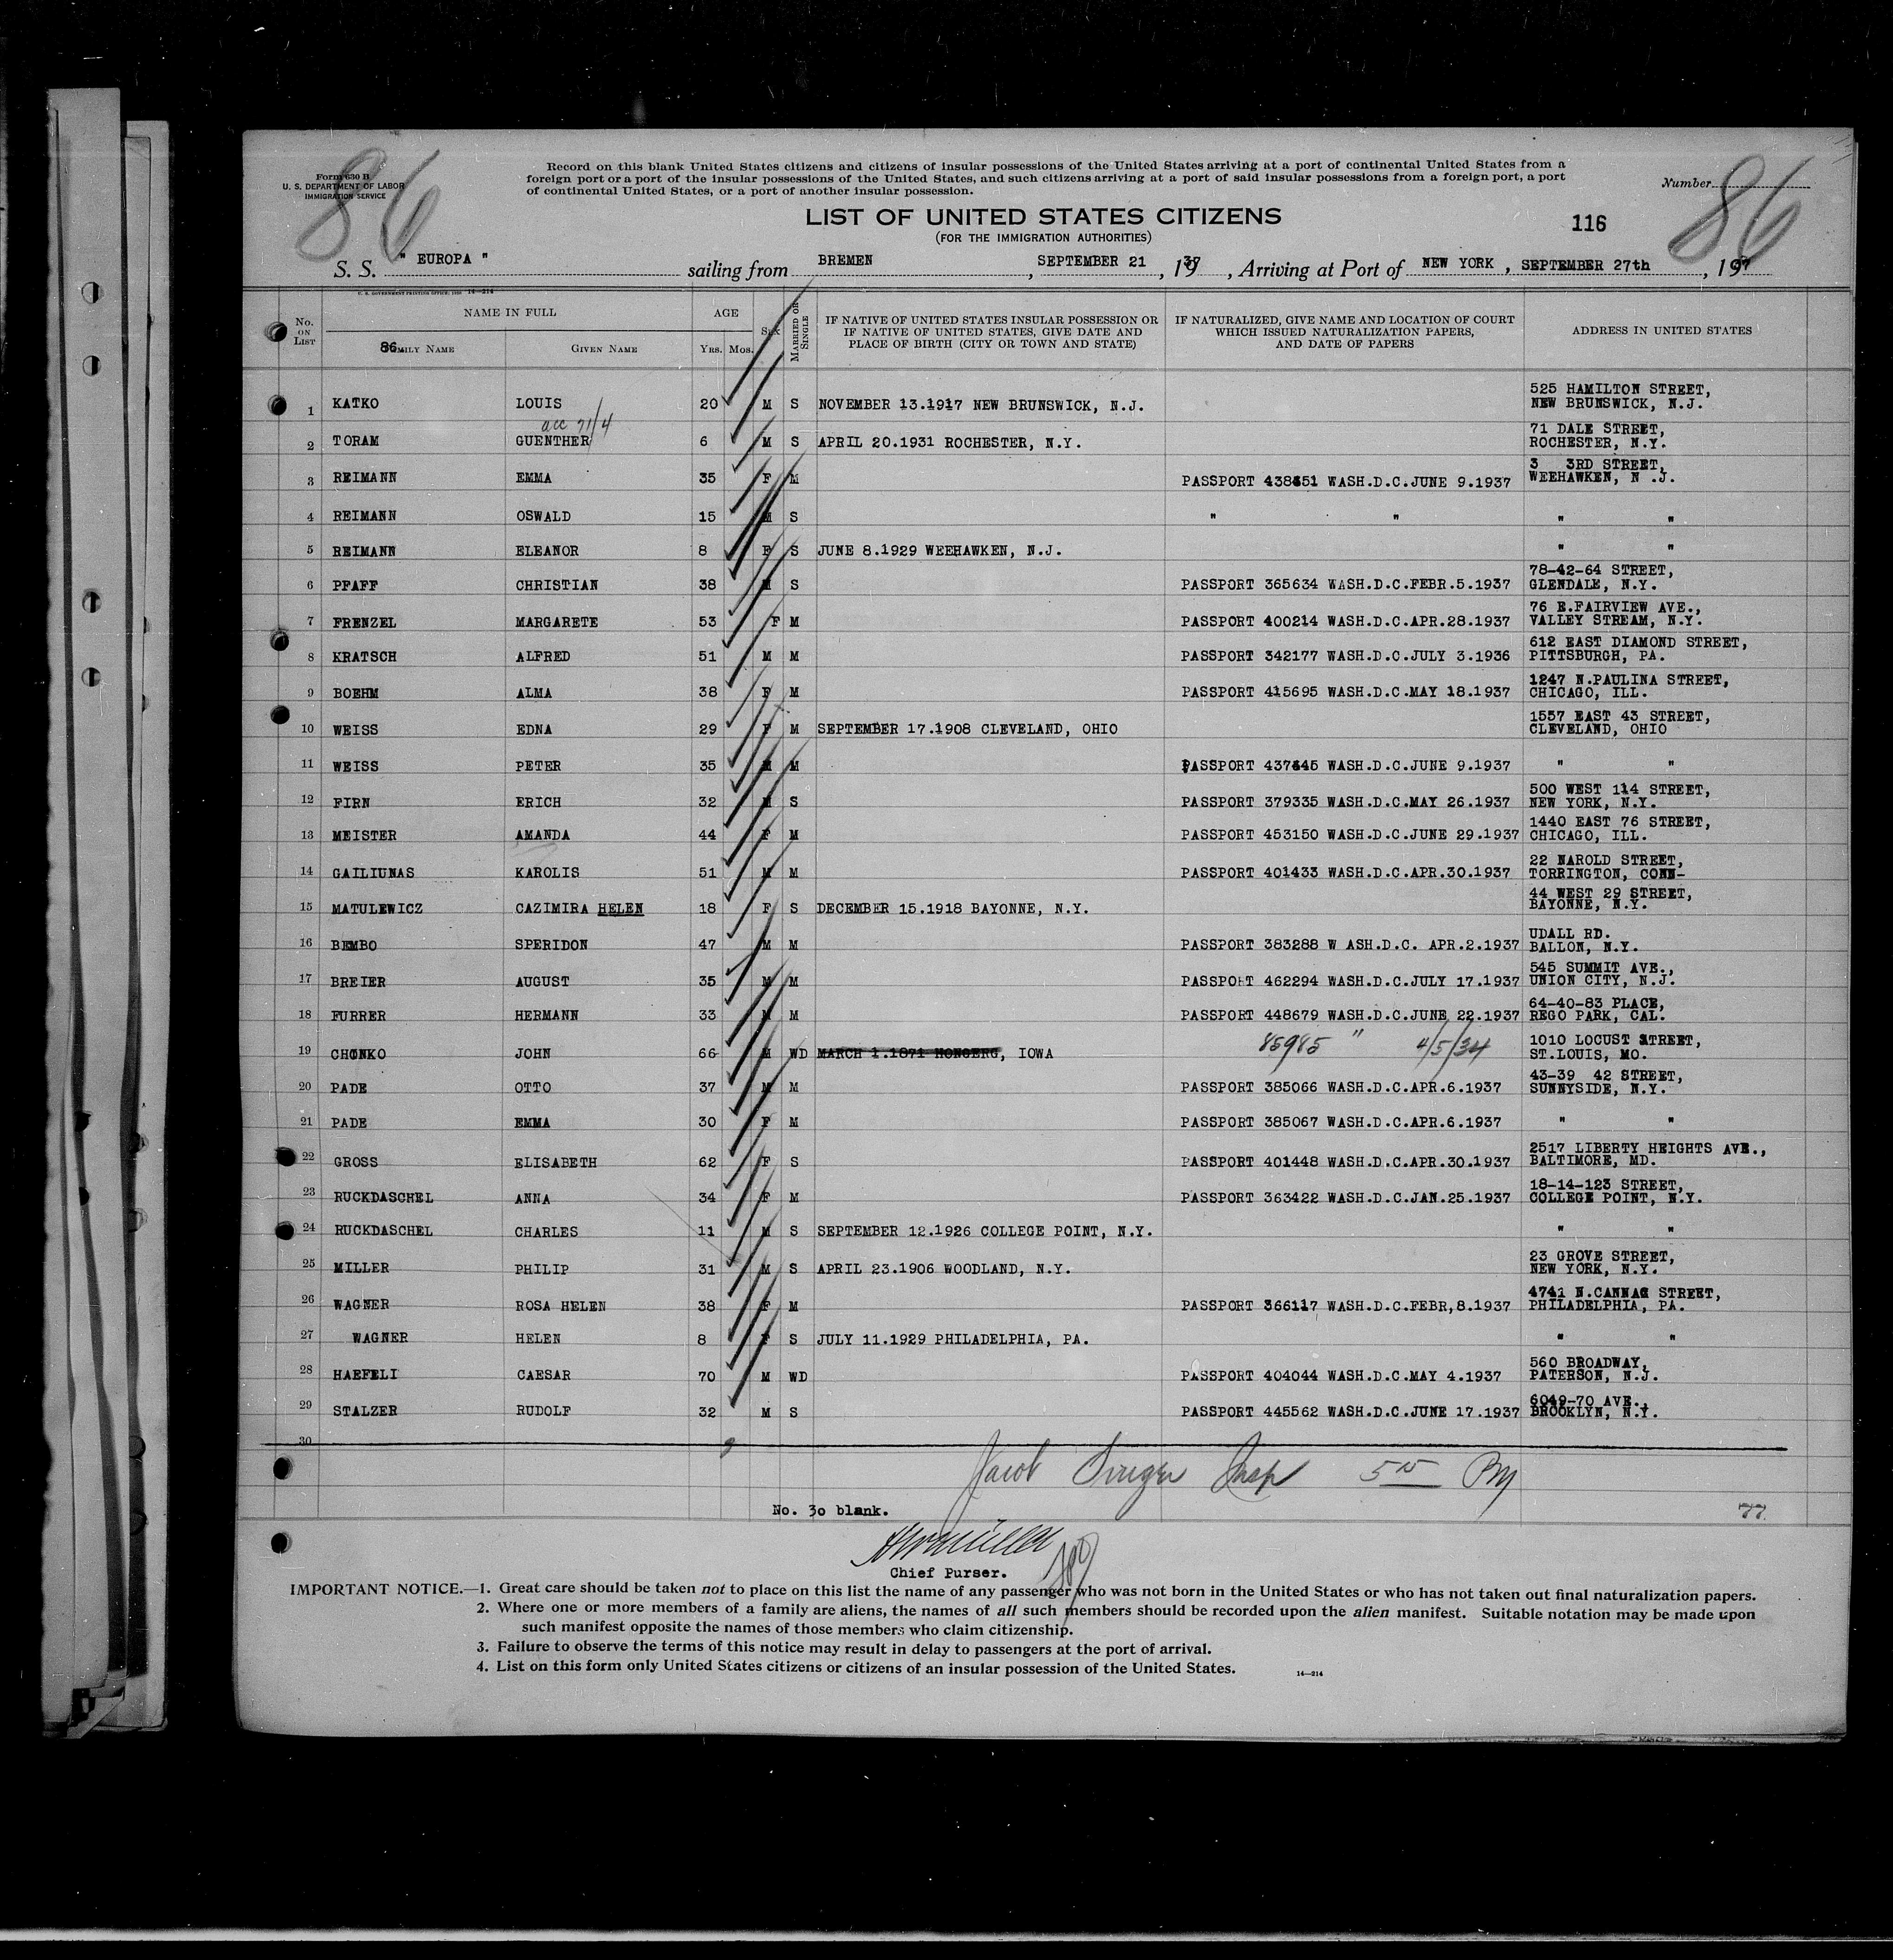 86
86
Form 630 B
U. S. DEPARTMENT OF LABOR
IMMIGRATION SERVICE
Record on this blank United States citizens and citizens of insular possessions of the United States arriving at a port of continental United States from a
foreign port or a port of the insular possessions of the United States, and such citizens arriving at a port of said insular possessions from a foreign port, a port
of continental United States, or a port of another insular possession.
Number
LIST OF UNITED STATES CITIZENS
(FOR THE IMMIGRATION AUTHORITIES)
116
S. S. " EUROPA " sailing from BREMEN, SEPTEMBER 21, 1937, Arriving at Port of NEW YORK, SEPTEMBER 27th, 1937
U. S. GOVERNMENT PRINTING OFFICE 14—214
No. ON LIST NAME IN FULL AGE SEX MARRIED OR SINGLE IF NATIVE OF UNITED STATES INSULAR POSSESSION OR IF NATIVE OF UNITED STATES, GIVE DATE AND PLACE OF BIRTH (CITY OR TOWN AND STATE) IF NATURALIZED, GIVE NAME AND LOCATION OF COURT WHICH ISSUED NATURALIZATION PAPERS, AND DATE OF PAPERS ADDRESS IN UNITED STATES
86. FAMILY NAME GIVEN NAME YRS. MOS.
1 KATKO LOUIS 20 M S NOVEMBER 13.1917 NEW BRUNSWICK, N.J. 525 HAMILTON STREET, NEW BRUNSWICK, N.J.
acc 71/4
2 TORAM GUENTHER 6 M S APRIL 20.1931 ROCHESTER, N.Y. 71 DALE STREET, ROCHESTER, N.Y.
3 REIMANN EMMA 35 F M PASSPORT 438651 WASH.D.C.JUNE 9.1937 3 3RD STREET, WEEHAWKEN, N .J.
4 REIMANN OSWALD 15 M S " " " "
5 REIMANN ELEANOR 8 F S JUNE 8.1929 WEEHAWKEN, N.J. " "
6 PFAFF CHRISTIAN 38 M S PASSPORT 365634 WASH.D.C.FEBR.5.1937 78-42-64 STREET, GLENDALE, N.Y.
7 FRENZEL MARGARETE 53 F M PASSPORT 400214 WASH.D.C.APR.28.1937 76 E.FAIRVIEW AVE., VALLEY STREAM, N.Y.
8 KRATSCH ALFRED 51 M M PASSPORT 342177 WASH.D.C.JULY 3.1936 612 EAST DIAMOND STREET, PITTSBURGH, PA.
9 BOEHM ALMA 38 F M PASSPORT 415695 WASH.D.C.MAY 18.1937 1247 N.PAULINA STREET, CHICAGO, ILL.
10 WEISS EDNA 29 F M SEPTEMBER 17.1908 CLEVELAND, OHIO 1557 EAST 43 STREET, CLEVELAND, OHIO
11 WEISS PETER 35 M M PASSPORT 437645 WASH.D.C.JUNE 9.1937 " "
12 FIRN ERICH 32 M S PASSPORT 379335 WASH.D.C.MAY 26.1937 500 WEST 114 STREET, NEW YORK, N.Y.
13 MEISTER AMANDA 44 F M PASSPORT 453150 WASH.D.C.JUNE 29.1937 1440 EAST 76 STREET, CHICAGO, ILL.
14 GAILIUNAS KAROLIS 51 M M PASSPORT 401433 WASH.D.C.APR.30.1937 22 NAROLD STREET, TORRINGTON, CONN-
15 MATULEWICZ CAZIMIRA HELEN 18 F S DECEMBER 15.1918 BAYONNE, N.Y. 44 WEST 29 STREET, BAYONNE, N.Y.
16 BEMBO SPERIDON 47 M M PASSPORT 383288 W ASH.D.C. APR.2.1937 UDALL RD. BALLON, N.Y.
17 BREIER AUGUST 35 M M PASSPORT 462294 WASH.D.C.JULY 17.1937 545 SUMMIT AVE., UNION CITY, N.J.
18 FURRER HERMANN 33 M M PASSPORT 448679 WASH.D.C.JUNE 22.1937 64-40-83 PLACE, REGO PARK, CAL.
19 CHONKO JOHN 66 M WD MARCH 1.1871 HONGERG, IOWA 85985 " 4/5/34 1010 LOCUST STREET, ST.LOUIS, MO.
20 PADE OTTO 37 M M PASSPORT 385066 WASH.D.C.APR.6.1937 43-39 42 STREET, SUNNYSIDE, N.Y.
21 PADE EMMA 30 F M PASSPORT 385067 WASH.D.C.APR.6.1937 " "
22 GROSS ELISABETH 62 F S PASSPORT 401448 WASH.D.C.APR.30.1937 2517 LIBERTY HEIGHTS AVE., BALTIMORE, MD.
23 RUCKDASCHEL ANNA 34 F M PASSPORT 363422 WASH.D.C.JAN.25.1937 18-14-123 STREET, COLLEGE POINT, N.Y.
24 RUCKDASCHEL CHARLES 11 M S SEPTEMBER 12.1926 COLLEGE POINT, N.Y. " "
25 MILLER PHILIP 31 M S APRIL 23.1906 WOODLAND, N.Y. 23 GROVE STREET, NEW YORK, N.Y.
26 WAGNER ROSA HELEN 38 F M PASSPORT 366117 WASH.D.C.FEBR,8.1937 4741 N.CANNAC STREET, PHILADELPHIA, PA.
27 WAGNER HELEN 8 F S JULY 11.1929 PHILADELPHIA, PA. " "
28 HAEFELI CAESAR 70 M WD PASSPORT 404044 WASH.D.C.MAY 4.1937 560 BROADWAY, PATERSON, N.J.
29 STALZER RUDOLF 32 M S PASSPORT 445562 WASH.D.C.JUNE 17.1937 6049-70 AVE., BROOKLYN, N.Y.
30
Jacob Singer Insp
No. 30 blank.
77
Chief Purser.
IMPORTANT NOTICE.—1. Great care should be taken not to place on this list the name of any passenger who was not born in the United States or who has not taken out final naturalization papers.
2. Where one or more members of a family are aliens, the names of all such members should be recorded upon the alien manifest. Suitable notation may be made upon
such manifest opposite the names of those members who claim citizenship.
3. Failure to observe the terms of this notice may result in delay to passengers at the port of arrival.
4. List on this form only United States citizens or citizens of an insular possession of the United States.
14—214